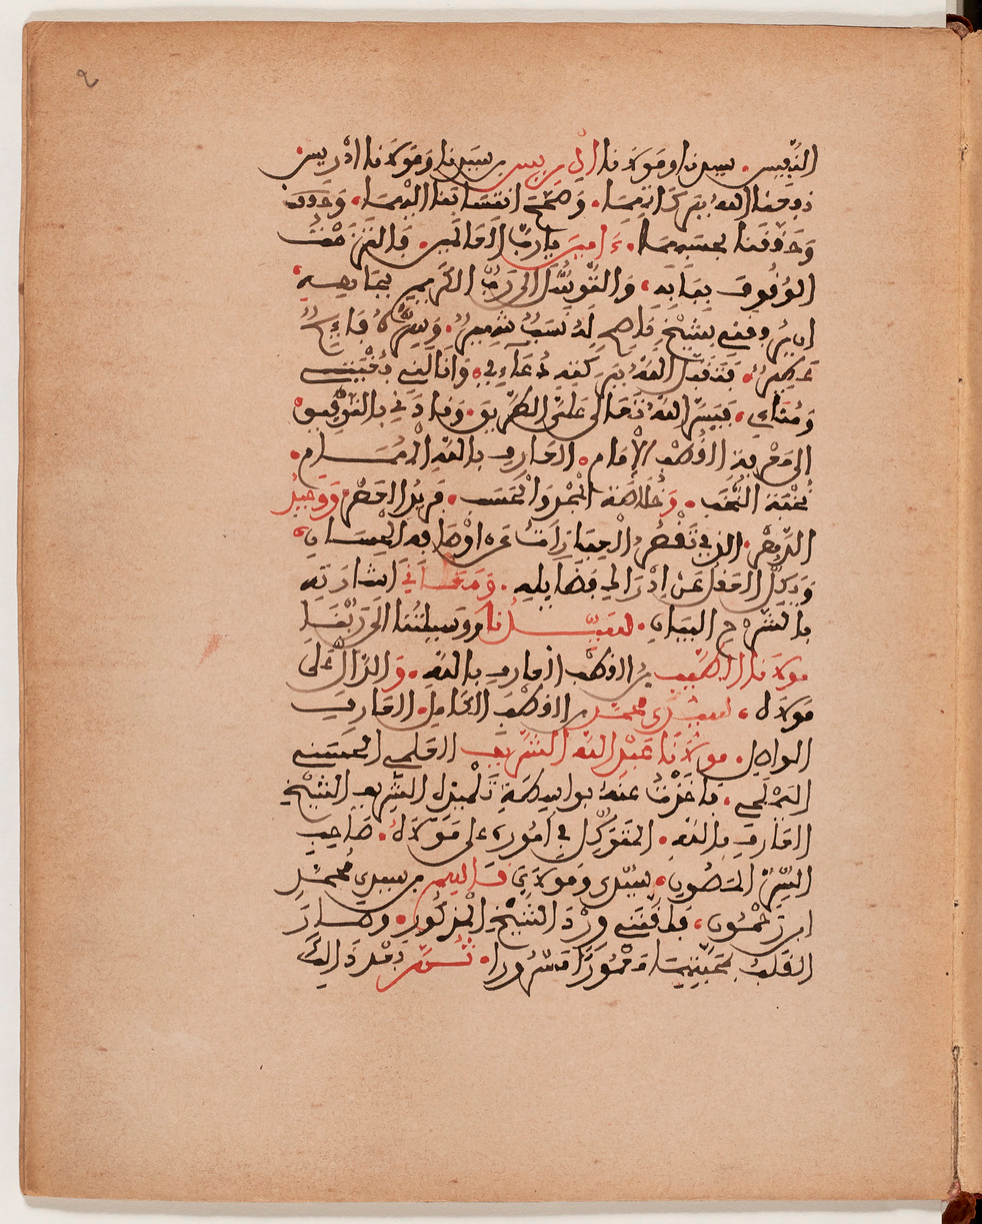 ٢
النفيس. سيدنا ومولانا ادريس بن سيدنا ومولانا ادريس.
نفعنا الله ببركاتهما. وصحح انتسابنا اليهما،
بحبهما. ءامين يارب العالمين. فالتزمت
الوقوف ببابه، والتوسل الى رب الكريم بجنابه،
ان يرزقني بشيخ ناصح له نسب شهير. وسر
فتقبل الله ببركته دعاءي. وانالني بغيتي
ومناي، فيسر الله تعالى علي الطريق. وقادني بالتوفيق
الى معرفة القطب الامام. العارف بالله الهمام.
نخبة النخب. وخلاصة المجد والحسب. فريد العصر ووحيد
الدهر. الذي تقصر العبارات عن اوصافه الحسان،
ويكل العقل عن ادراك فضايله. ومعاني اشارته
بالشرح البيان. سيدنا ووسيلتنا الى ربنا
مولانا الطيب بن القطب العارف بالله. والدال على
مولاه، سيدي محمد بن القطب الكامل. العارف
الواصل. مولانا عبد الله الشريف العلمي الحسني
اليملحي. فاخذت عنه بواسطة تلميذه الشريف الشيخ
العارف بالله. المتوكل في اموره على مولاه. صاحب
السر المصون، سيدي ومولاي قاسم بن سيدي محمد
ابن رحمون، فلقنني ورد الشيخ المذكور. وصار
القلب معمورا مسرورا. ثم بعد ذالك